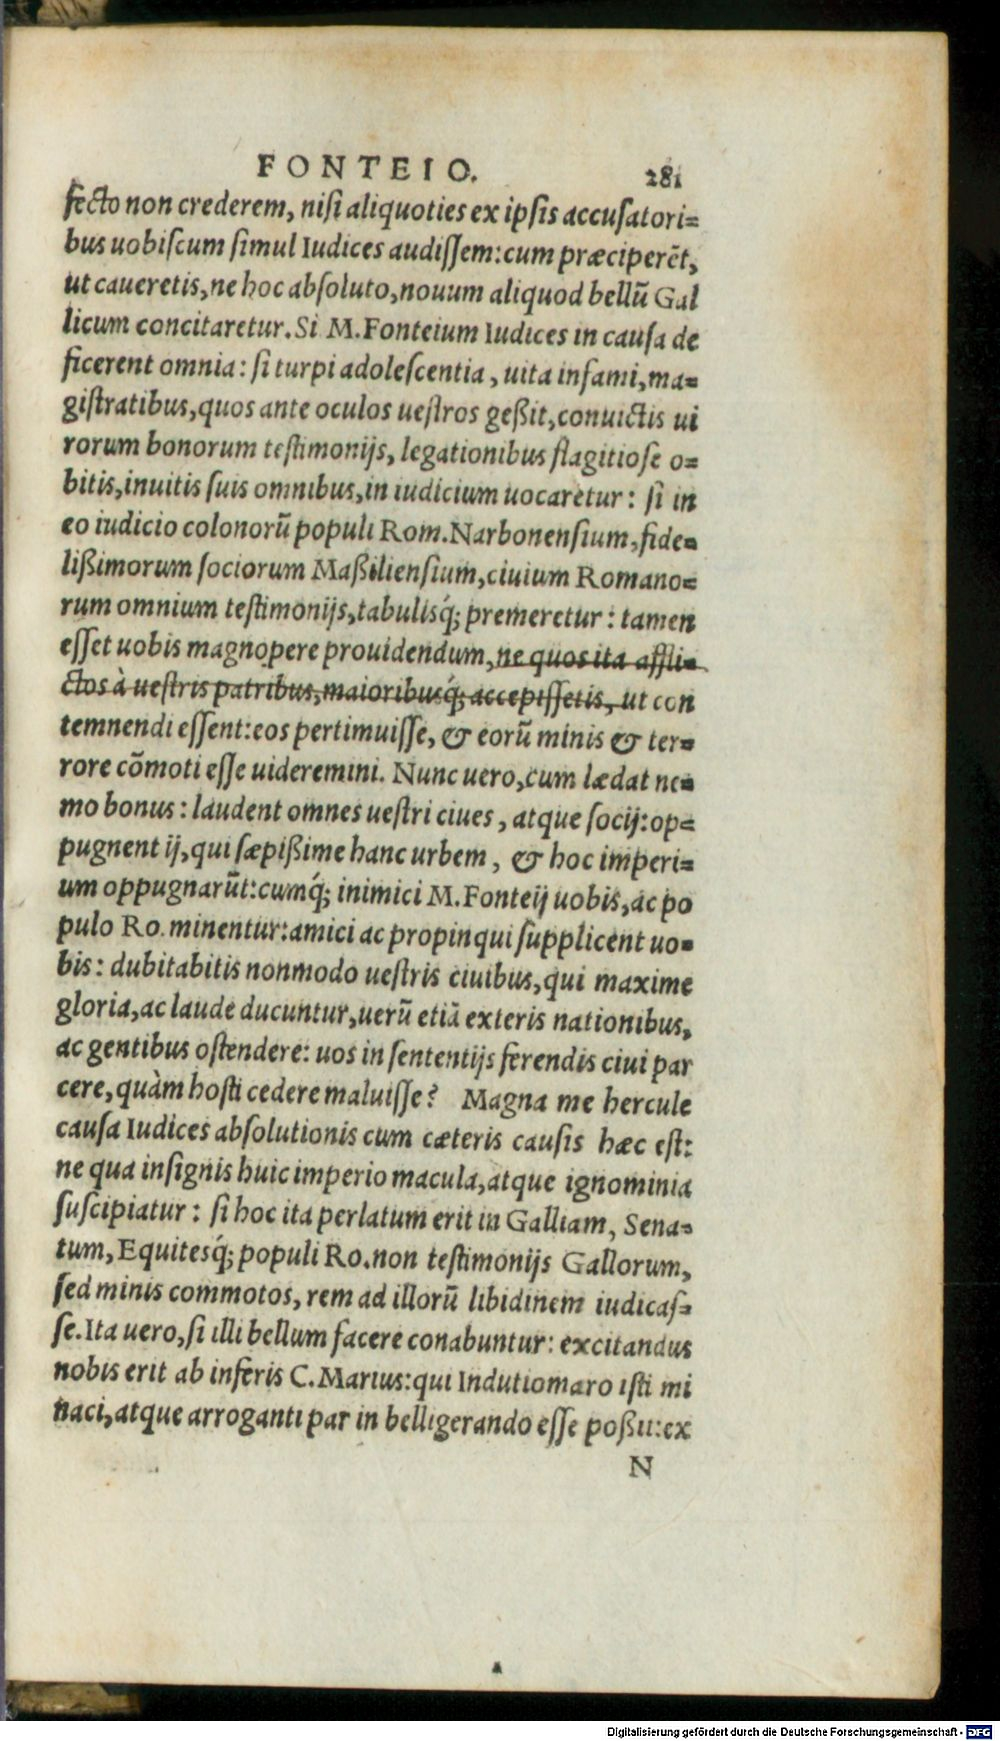 FONTEIO. 281
fecto non crederem, nisi aliquoties ex ipsis accusatori=
bus uobiscum simul Iudices audissem: cum præciperēt,
ut caueretis, ne hoc absoluto, nouum aliquod bellū Gal
licum concitaretur. Si M. Fonteium Iudices in causa de
ficerent omnia: si turpi adolescentia, uita infami, ma=
gistratibus, quos ante oculos uestros geßit, conuictis ui
rorum bonorum testimonijs, legationibus flagitiose o=
bitis, inuitis suis omnibus, in iudicium uocaretur: si in
eo iudicio colonorū populi Rom. Narbonensium, fide=
lißimorum sociorum Maßiliensium, ciuium Romano=
rum omnium testimonijs, tabulisq́; premeretur: tamen
esset uobis magnopere prouidendum, ne quos ita affli=
ctos à uestris patribus, maioribusq́; accepissetis, ut con
temnendi essent: eos pertimuisse, & eorū minis & ter=
rore cōmoti esse uideremini. Nunc uero, cum lædat ne=
mo bonus: laudent omnes uestri ciues, atque socij: op=
pugnent ij, qui sæpißime hanc urbem, & hoc imperi=
um oppugnarūt: cumq́; inimici M. Fonteij uobis, ac po
pulo Ro. minentur: amici ac propinqui supplicent uo=
bis: dubitabitis nonmodo uestris ciuibus, qui maxime
gloria, ac laude ducuntur, uerū etiā exteris nationibus,
ac gentibus ostendere: uos in sententijs ferendis ciui par
cere, quàm hosti cedere maluisse? Magna me hercule
causa Iudices absolutionis cum cæteris causis hæc est:
ne qua insignis huic imperio macula, atque ignominia
suscipiatur: si hoc ita perlatum erit in Galliam, Sena=
tum, Equitesq́; populi Ro. non testimonijs Gallorum,
sed minis commotos, rem ad illorū libidinem iudicas=
se. Ita uero, si illi bellum facere conabuntur: excitandus
nobis erit ab inferis C. Marius: qui Indutiomaro isti mi
naci, atque arroganti par in belligerando esse poßit: ex
N
Digitalisierung gefördert durch die Deutsche Forschungsgemeinschaft - DFG